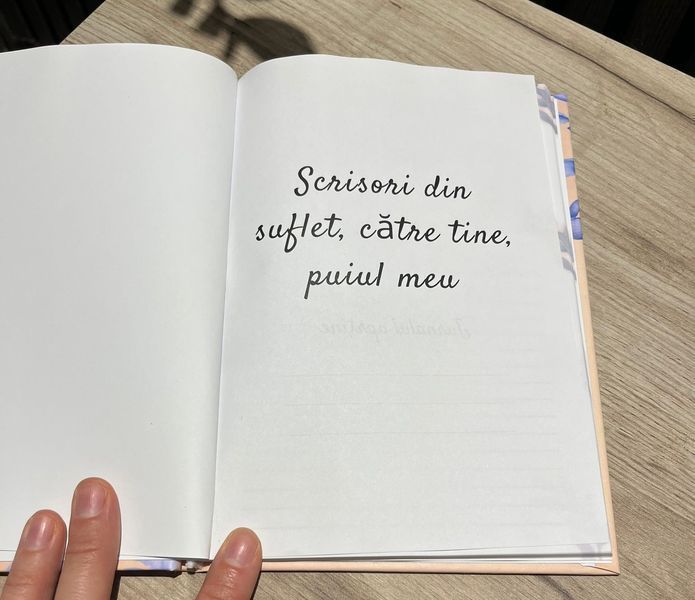 Scrisori din
suflet, către tine,
puiul meu